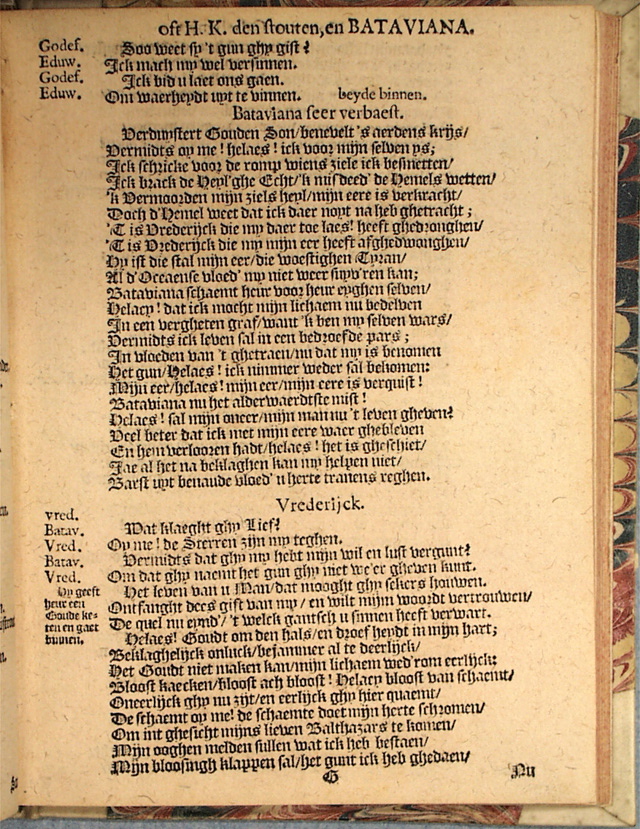 oft H. K. den stouten, en BATAVIANA.
Godef. Soo weet sy 't gun ghy gist?
Eduw. Ick mach my wel versinnen.
Godef. Ick bid u laet ons gaen.
Eduw. Om waerheydt uyt te vinnen. beyde binnen.
Bataviana seer verbaest.
Verduystert Gouden Son/benevelt 's aerdens krijs/
Vermidts oy me! helaes! ick voor mijn selven ys;
Ick schricke voor de romp wiens ziele ick besmetten/
Ick brack de Heyl'ghe Echt/'k misdeed' de Hemels wetten/
'k Vermoorden mijn ziels heyl/mijn eere is verkracht/
Doch d'Hemel weet dat ick daer noyt na heb ghetracht;
'T is Vrederijck die my daer toe laes! heeft ghedronghen/
'T is Vrederijck die my mijn eer heeft afghedwonghen/
Hy ist die stal mijn eer/die woestighen Tyran/
Al d'Oceaense vloed' my niet weer suyv'ren kan;
Bataviana schaemt heur voor heur eyghen selven/
Helacy! dat ick mocht mijn lichaem nu bedelven
In een vergheten graf/want 'k ben my selven wars/
Vermidts ick leven sal in een bedroefde pars;
In vloeden van 't ghetraen/nu dat my is benomen
Het gun/Helaes! ick nimmer weder sal bekomen:
Mijn eer/helaes! mijn eer/mijn eere is verquist!
Bataviana nu het alderwaerdtste mist!
Helaes! sal mijn oneer/mijn man nu 't leven gheven?
Veel beter dat ick met mijn eere waer ghebleven
En hem verlooren hadt/helaes! het is gheschiet/
Jae al het na beklaghen kan my helpen niet/
Barst uyt benaude vloed' u herte tranens reghen.
Vrederijck.
vred. Wat klaeght ghy Lief?
Batav. Oy me! de Sterren zijn my teghen.
Vred. Vermidts dat ghy my hebt mijn wil en lust vergunt?
Batav. Om dat ghy naemt het gun ghy niet we'er gheven kunt.
Vred. Het leven van u Man/dat mooght ghy sekers houwen.
Hy geeft heur een Goude keten en gaet binnen.
Ontfanght dees gift van my/en wilt mijn woordt vertrouwen/
De quel nu eynd'/'t welck gantsch u sinnen heeft verwart.
Helaes! Goudt om den hals/en droefheydt in mijn hart;
Beklaghelijck onluck/bejammer al te deerlijck/
Het Goudt niet maken kan/mijn lichaem wed'rom eerlijck:
Bloost kaecken/bloost ach bloost! Helacy bloost van schaemt/
Oneerlijck ghy nu zijt/en eerlijck ghy hier quaemt/
De schaemt oy me! de schaemte doet mijn herte schromen/
Om int ghesicht mijns lieven Balthazars te komen/
Mijn ooghen melden sullen wat ick heb bestaen/
Mijn bloosingh klappen sal/het gunt ick heb ghedaen/
G Nu